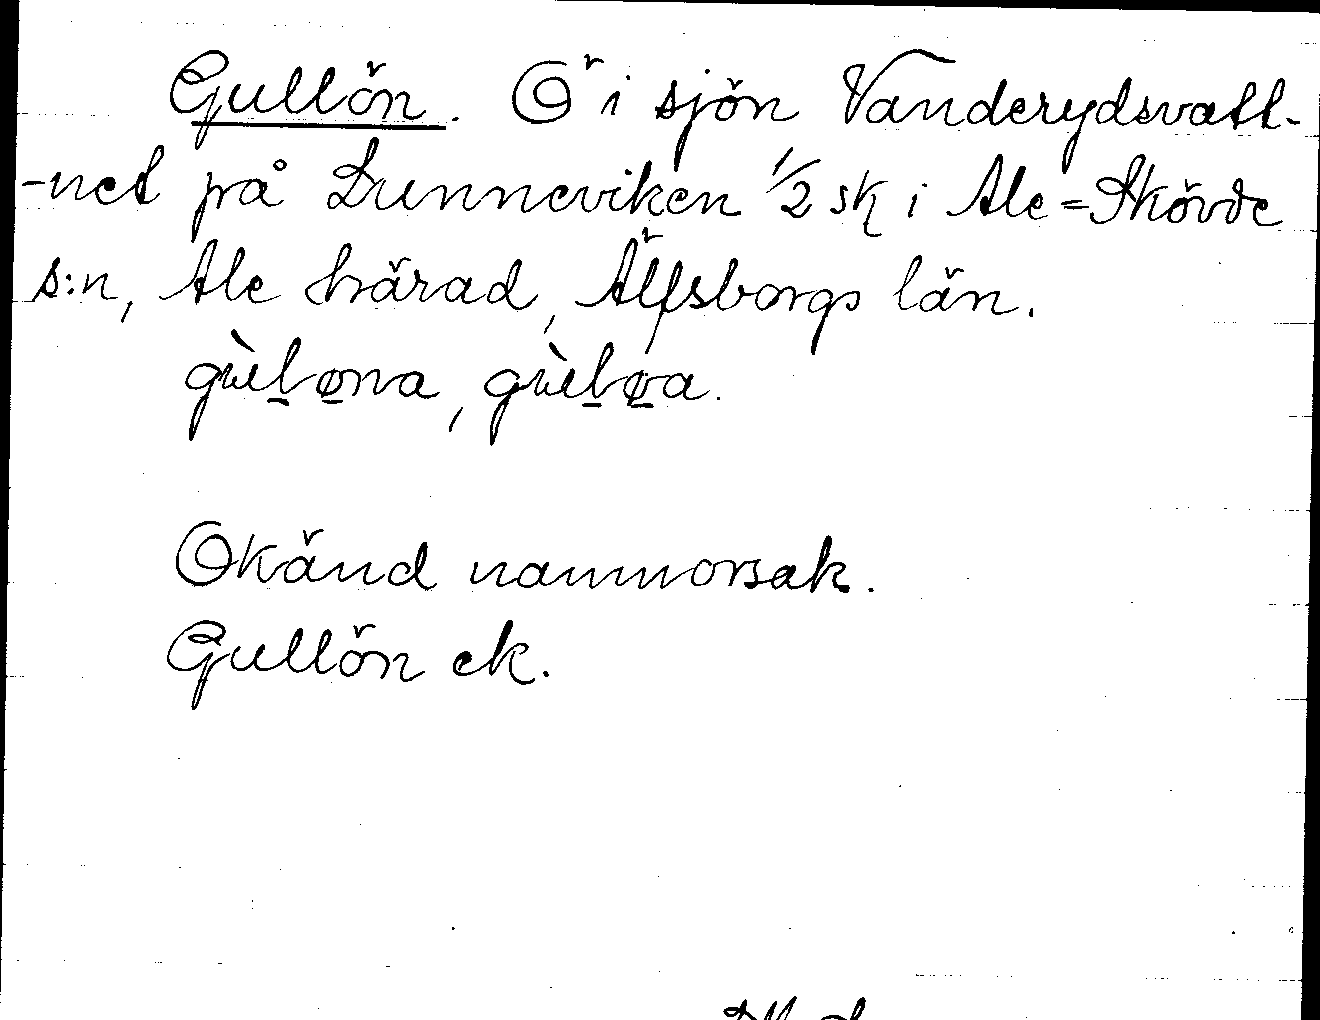 Gullön. Ö i sjön Vanderydsvatt-
-net på Dunneviken 1/2 sk i Ale=Skövde
s:n, Ale härad, Älfsborgs län.
gùlø̱na, gùlø̱a.
Okänd namnorsak.
Gullön ek.